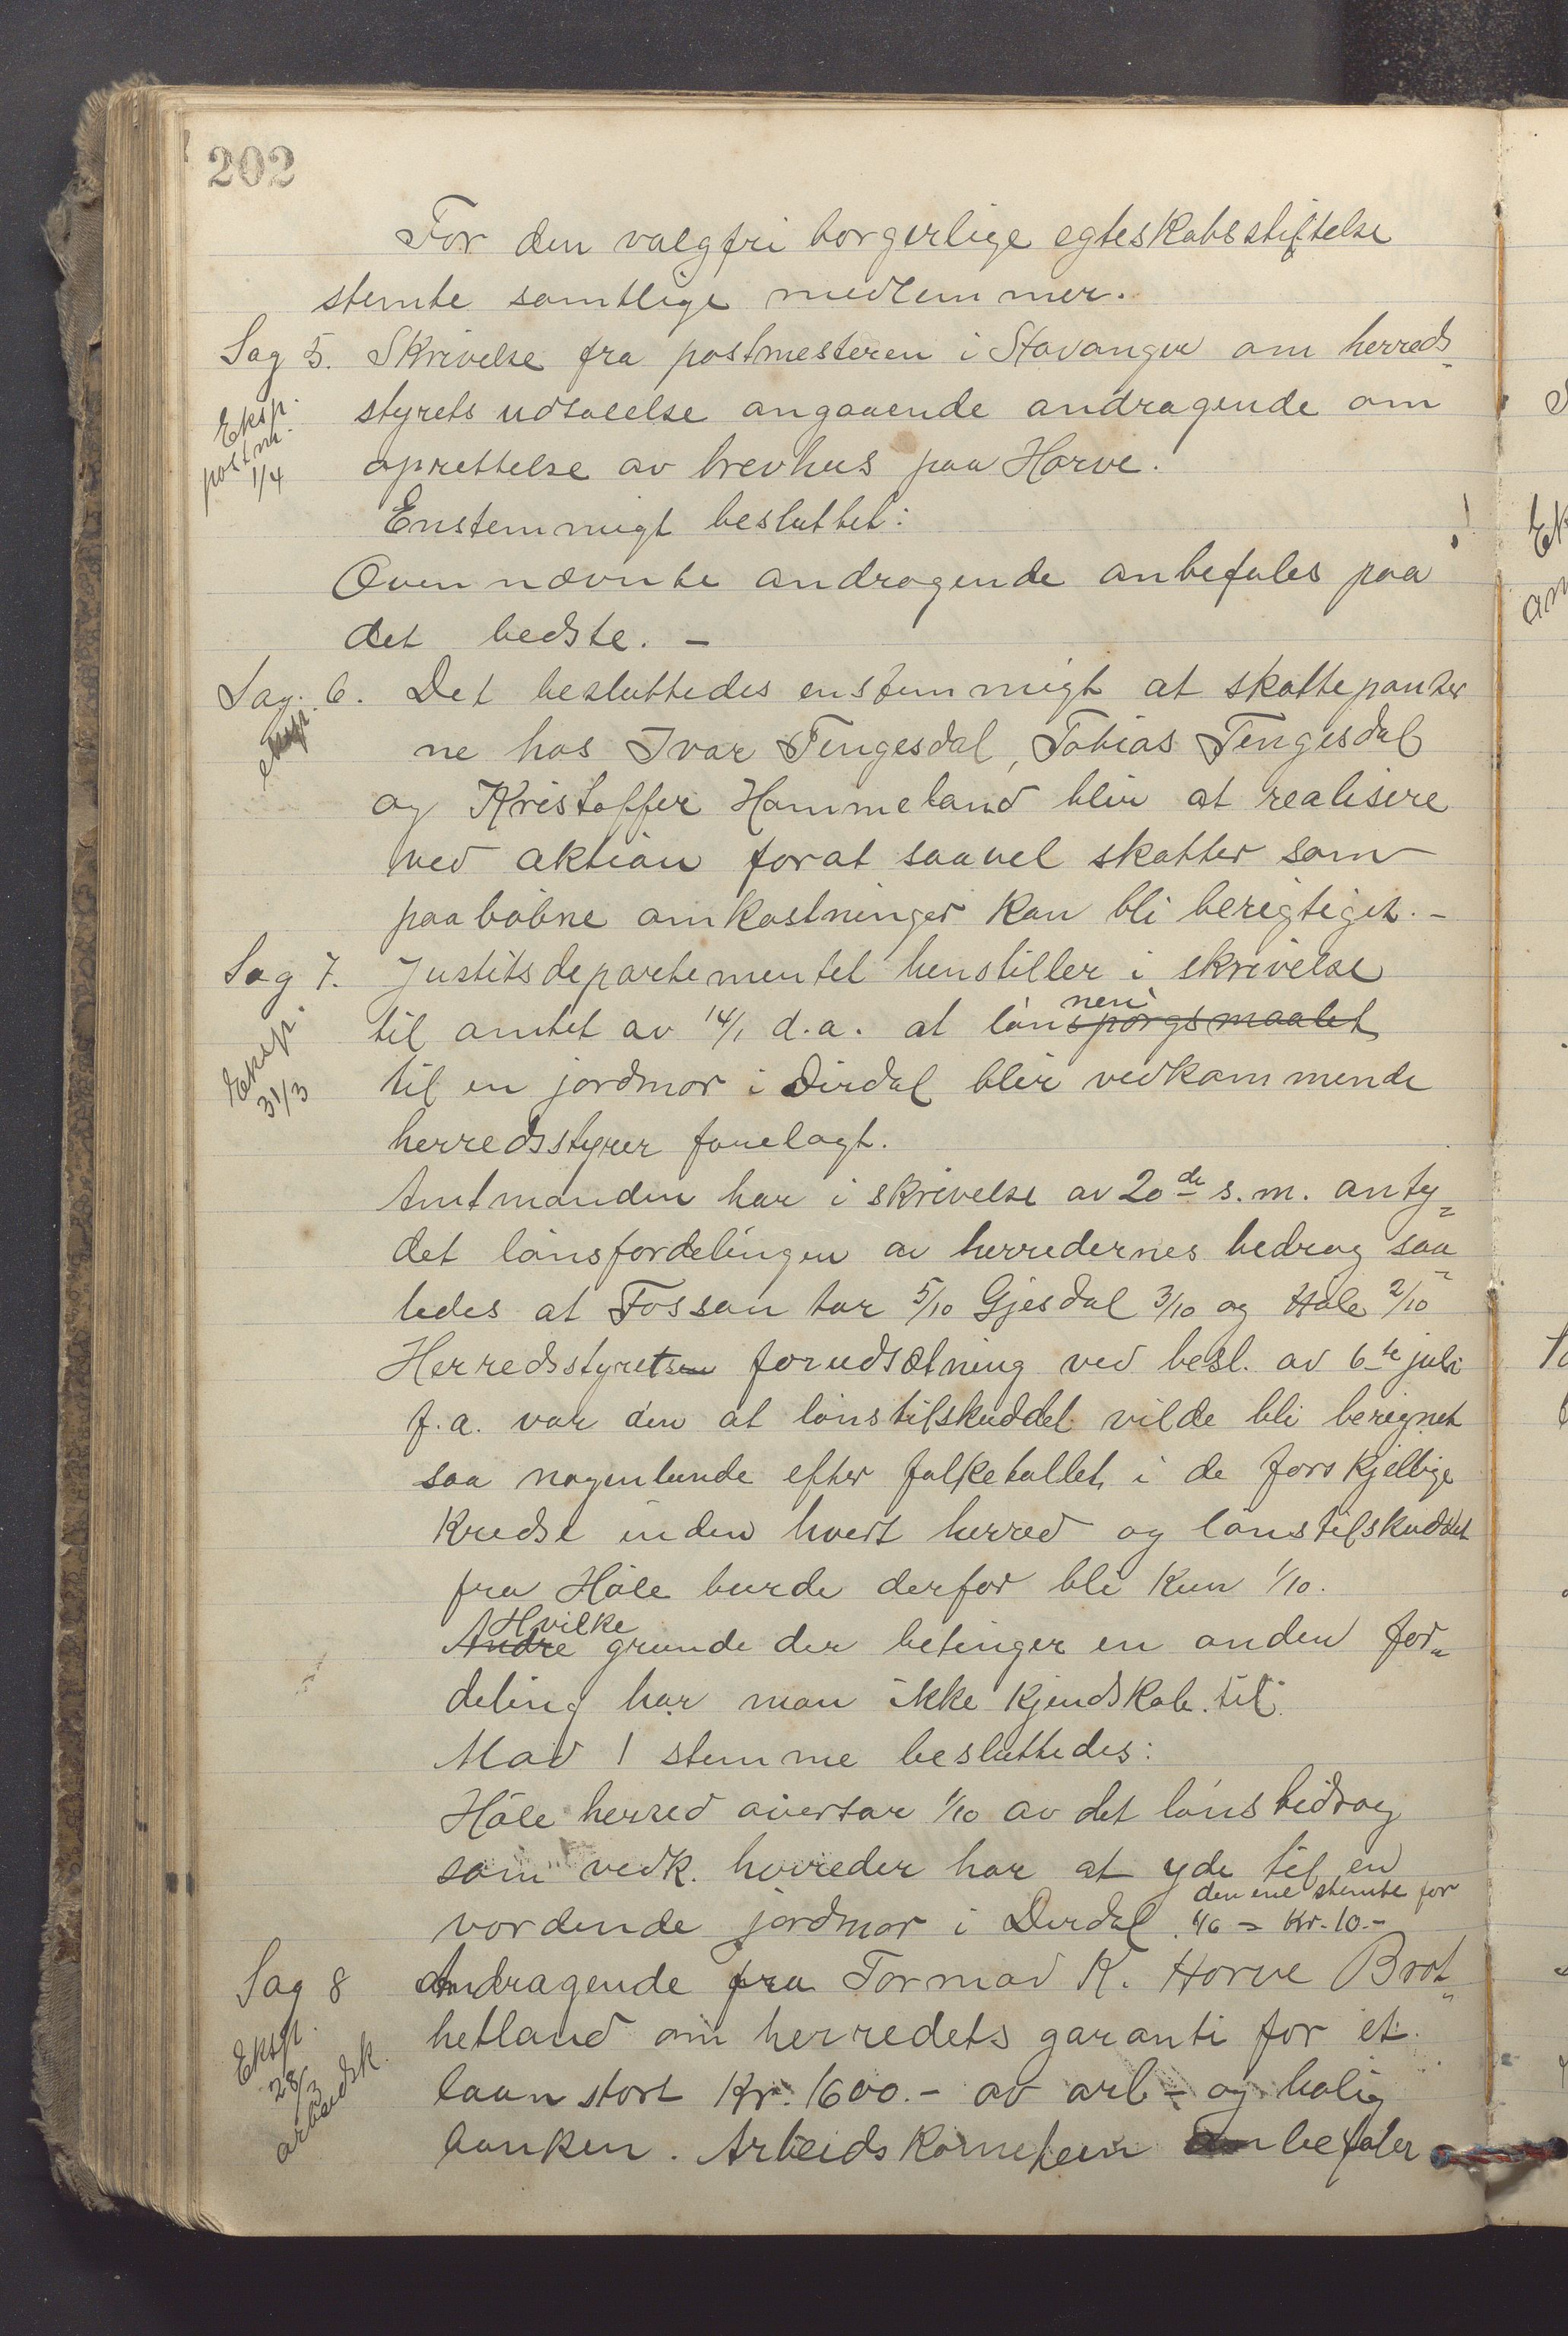 202
For den valgfri borgerlige egteskabsstiftelse
stemte samtlige medlemmer.
Sag 5. Skrivelse fra postmesteren i Stavanger om herreds-
Eksp. postm. 1/4
styrets udtalelse angaaende andragende om
oprettelse av brevhus paa Horve.
Enstemmigt besluttet:
Ovennævnte andragende anbefales paa
det bedste. -
Sag. 6. Det besluttedes enstemmigt at skattepanter
eksp.
ne hos Ivar Tengesdal, Tobias Tengesdal
og Kristoffer Hommeland blir at realisere
ved aktion forat saavel skatter som
paaløbne omkostninger kan bli berigtiget. -
Sag 7. Justitsdepartementet henstiller i skrivelse
Eksp. 31/3
til amtet av 14/1 d.a. at lønspørgsmaalet
nen
til en jordmor i Dirdal blir vedkommende
herredsstyrer forelagt.
Amtmanden har i skrivelse av 20de s.m. anty=
det lønsfordelingen av herredernes bedrag saa=
ledes at Fossan tar 5/10 Gjesdal 3/10 og Høle 2/10
Herredsstyretsen forudsætning ved besl. av 6te juli
f.a. var den at lønstilskuddet vilde bli beregnet
saa nogenlunde efter folketallet i de forskjellige
kredse inden hvert herred og lønstilskuddet
fra Høle burde derfor bli kun 1/10.
Hvilke
Andre grunde der betinger en anden for=
deling har man ikke kjendskab til.
Mod 1 stemme besluttedes:
Høle herred overtar 1/10 av det lønsbidrag
som vedk. herreder har at yde til en
den ene stemte for
vordende jordmor i Dirdal. 1/6 = Kr. 10.-
Sag 8 Andragende fra Tormod K. Horve Brot=
Eksp. 28/3 arbeidsk.
hetland om herredets garanti for et
laan stort Kr. 1600.- av arb- og bolig
banken. Arbeidskomiteen anbefaler